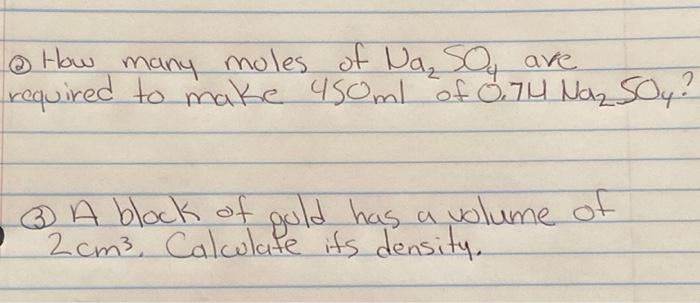 ② How many moles of Na₂SO₄ are
required to make 450ml of 0.7M Na₂SO₄?
③ A block of gold has a volume of
2cm³. Calculate its density.